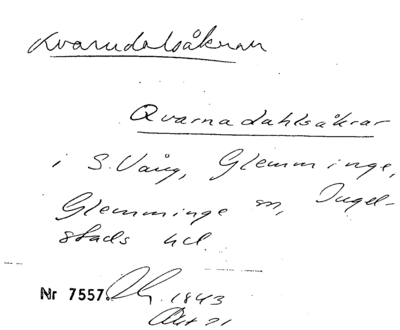 Kvarndalsåkran
Qvarnadahlsåkrar
i S. Vång, Glemminge,
Glemminge sn, Ingel-
stads hd.
Nr 7557. 1843
Akt 21